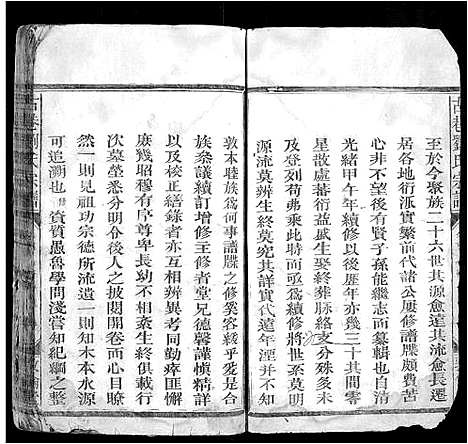 至於今聚族二十六世其源愈遠其流愈長遷
居各地衍派實繁前代諸公屢修譜牒頗費苦
心非不望後有賢子孫能繼志而纂輯也自清
光緒甲午年續修以後迄今歷年亦幾三十其間
星散處蕃衍益盛生娶終葬脉絡支分又多未
及登列苟弗乘此時而亟爲續修將世愈久
源流莫辨生終莫究其詳實代遠年湮幷不知
敦本睦族爲何事譜牒之修奚容緩乎爰是合
族衆議續訂增修主修者堂兄德馨謹愼精詳
以校正繕錄者亦互相辨異考同勤瘁匪懈
庶幾昭穆有序尊卑長幼不相紊生終俱載行
次墓塋悉分明令後人之披閱開卷而心目瞭
然一則見祖功宗德所流遺一則知木本水源
可追溯也　資質愚魯學問淺嘗知紀綱之整